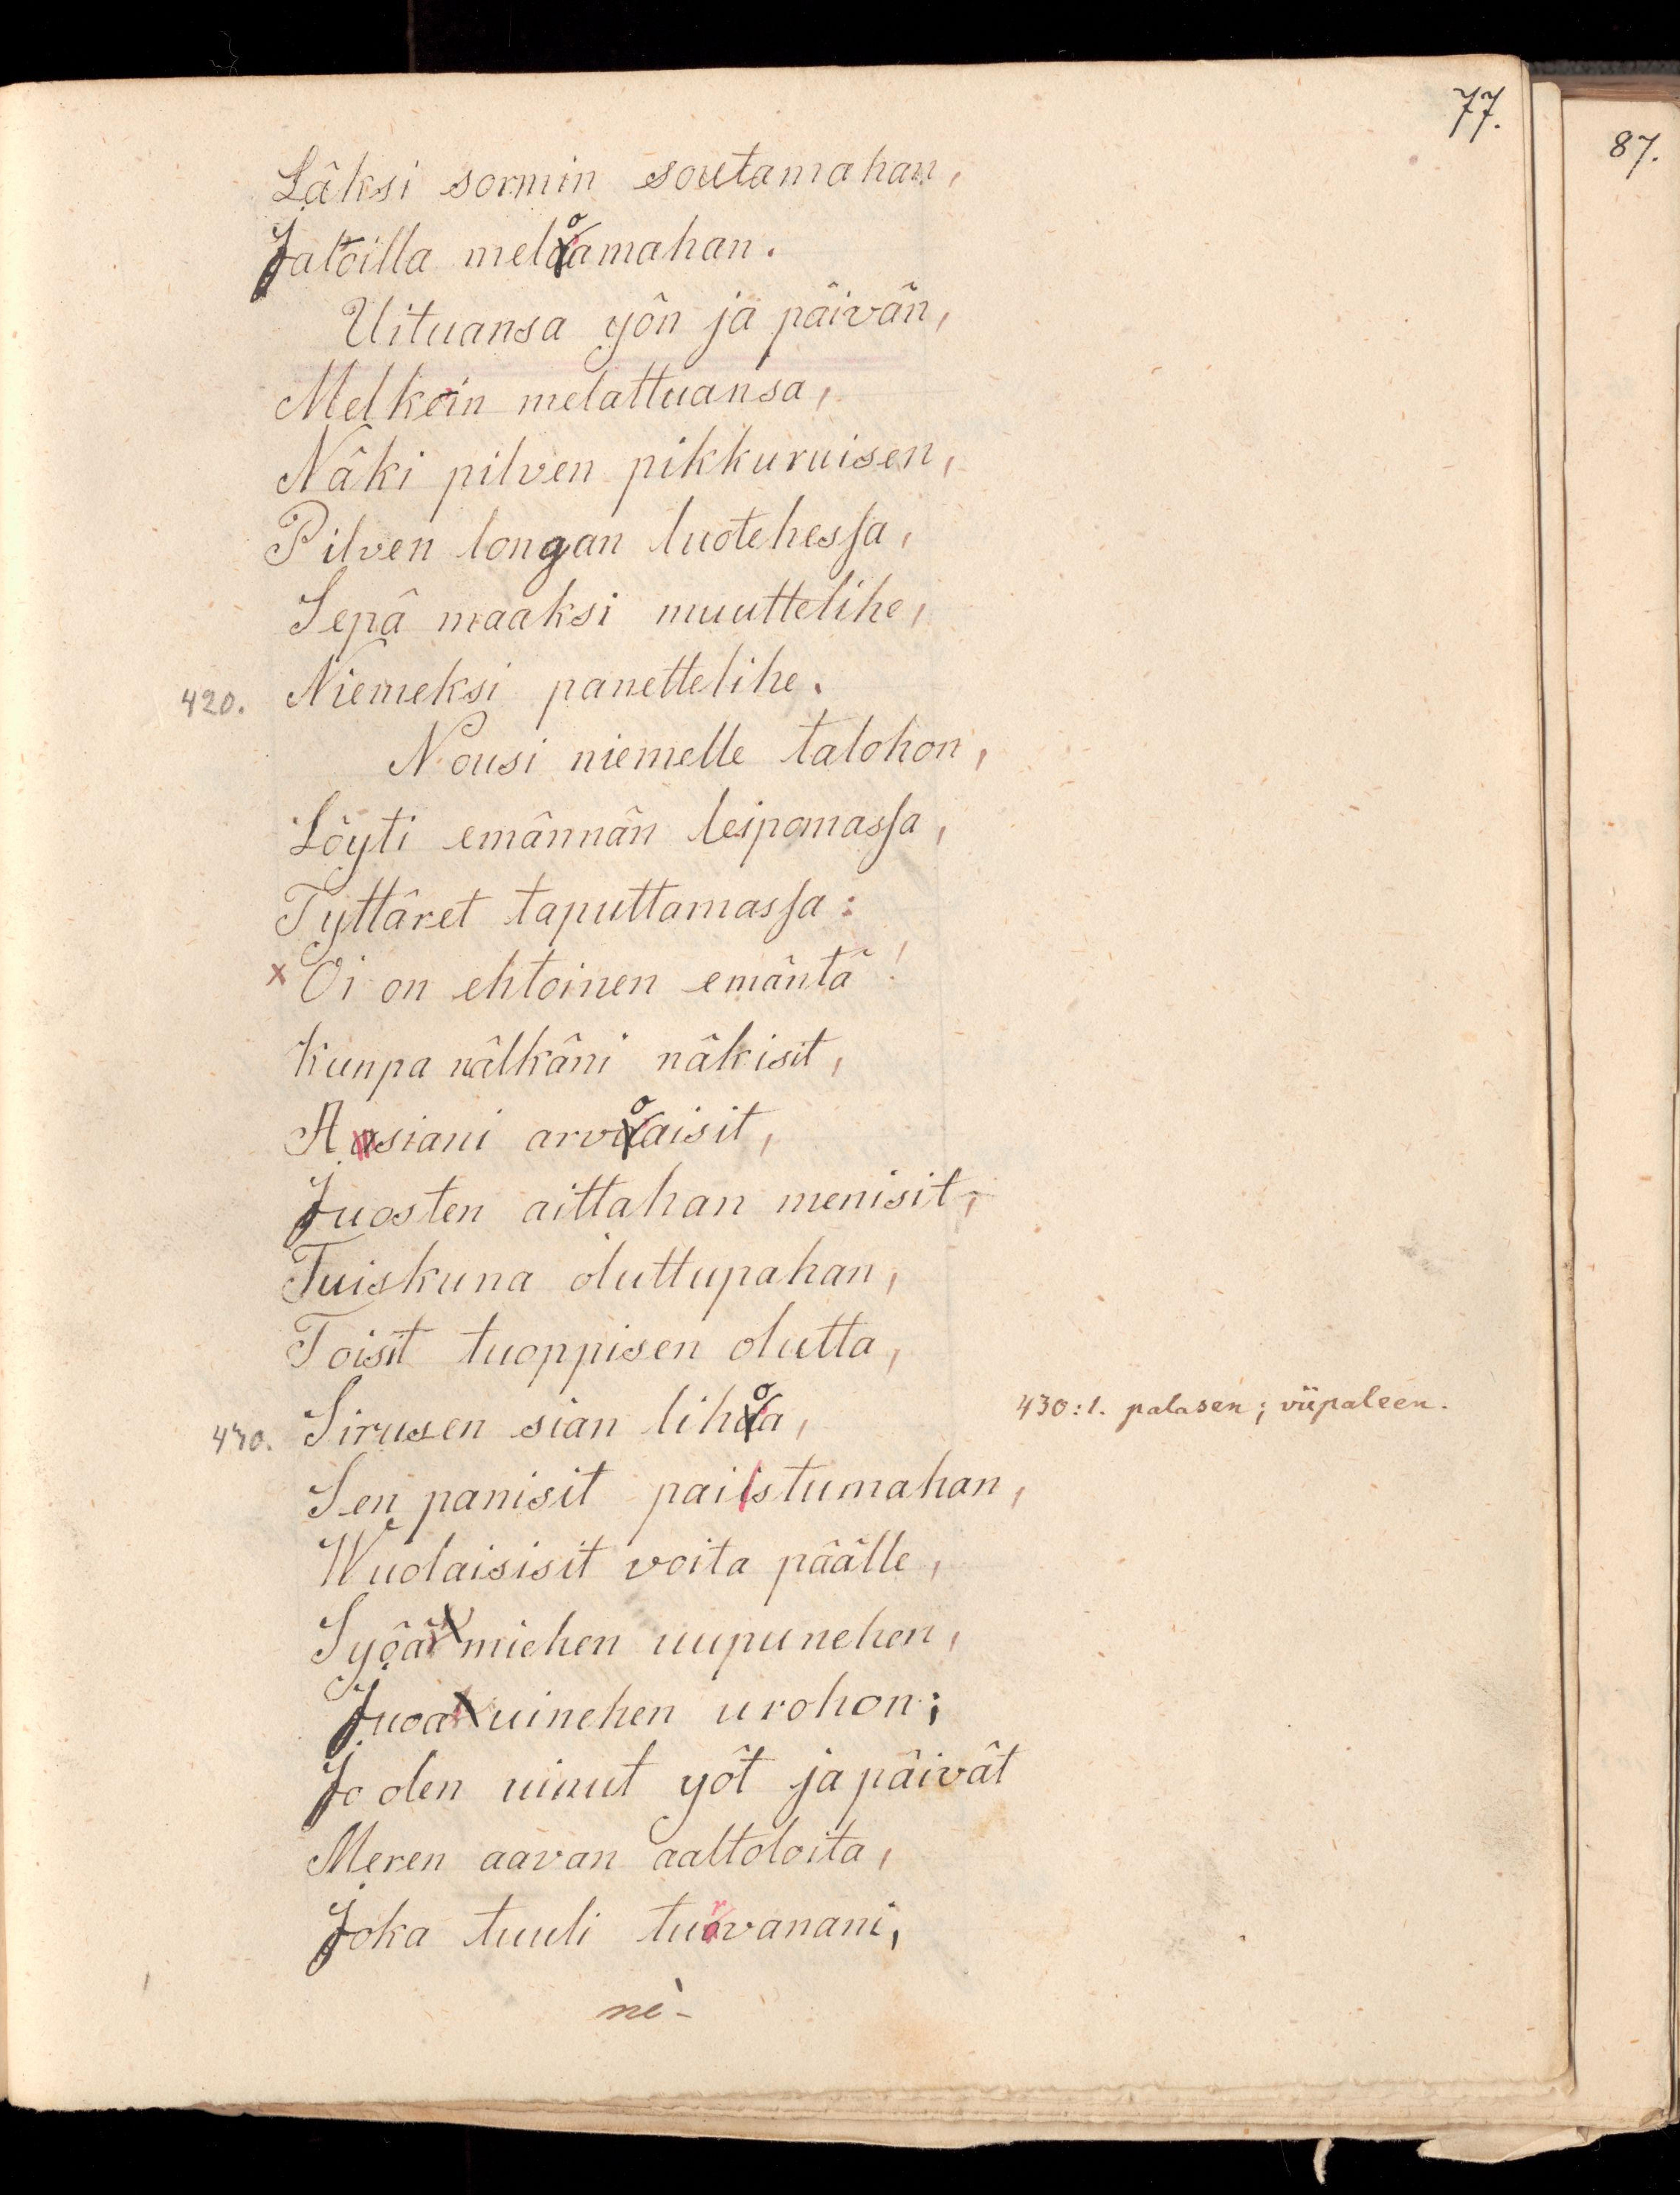 77.
87.
Läksi sormin soutamahan,
Jaloilla meloamahan.
Uituansa yön ja päivän,
Melkein melattuansa,
Näki pilven pikkuruisen,
Pilven longan luotehessa,
Sepä maaksi muuttelihe,
420. Niemeksi panettelihe.
Nousi niemelle talohon,
Löyti emännän leipomassa,
Tyttäret taputtamassa:
x Oi on ehtoinen emäntä!
Kunpa nälkäni näkisit,
Asiani arvoaisit,
Juosten aittahan menisit,
Tuiskuna oluttupahan,
Toisit tuoppisen olutta,
430. Sirusen sian lihoa,
430:1. palasen; viipaleen.
Sen panisit paistumahan,
Wuolaisisit voita päälle,
Syöä miehen uupunehen,
Juoa uinehen urohon;
Jo olen uinut yöt ja päivät
Meren aavan aaltoloita,
Joka tuuli turvanani,
ne-